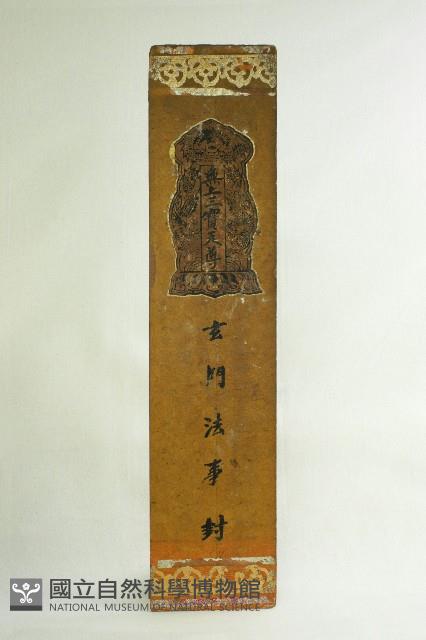 無上三寶天尊
玄門法事封
國立自然科學博物館
NATIONAL MUSEUM OF NATURAL SCIENCE